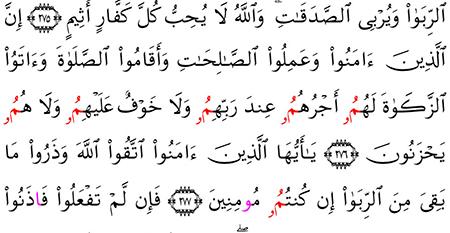 الرِّبَوٰا۟ وَيُرْبِى ٱلصَّدَقَٰتِ ۗ وَٱللَّهُ لَا يُحِبُّ كُلَّ كَفَّارٍ أَثِيمٍ ﴿٢٧٥﴾ إِنَّ
ٱلَّذِينَ ءَامَنُوا۟ وَعَمِلُوا۟ ٱلصَّٰلِحَٰتِ وَأَقَامُوا۟ ٱلصَّلَوٰةَ وَءَاتَوُا۟
ٱلزَّكَوٰةَ لَهُمُۥ أَجْرُهُمُۥ عِندَ رَبِّهِمُۥ وَلَا خَوْفٌ عَلَيْهِمُۥ وَلَا هُمُۥ
يَحْزَنُونَ ﴿٢٧٦﴾ يَٰٓأَيُّهَا ٱلَّذِينَ ءَامَنُوا۟ ٱتَّقُوا۟ ٱللَّهَ وَذَرُوا۟ مَا
بَقِىَ مِنَ ٱلرِّبَوٰا۟ إِن كُنتُمُۥ مُومِنِينَ ﴿٢٧٧﴾ فَإِن لَّمْ تَفْعَلُوا۟ فَاذَنُوا۟